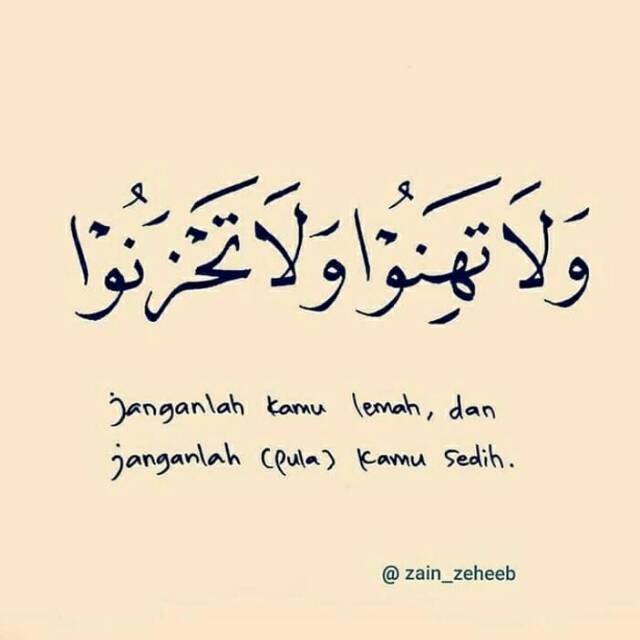 وَلَا تَهِنُوْا وَلَا تَحْزَنُوْا
janganlah kamu lemah, dan
janganlah (pula) kamu sedih.
@ zain_zeheeb